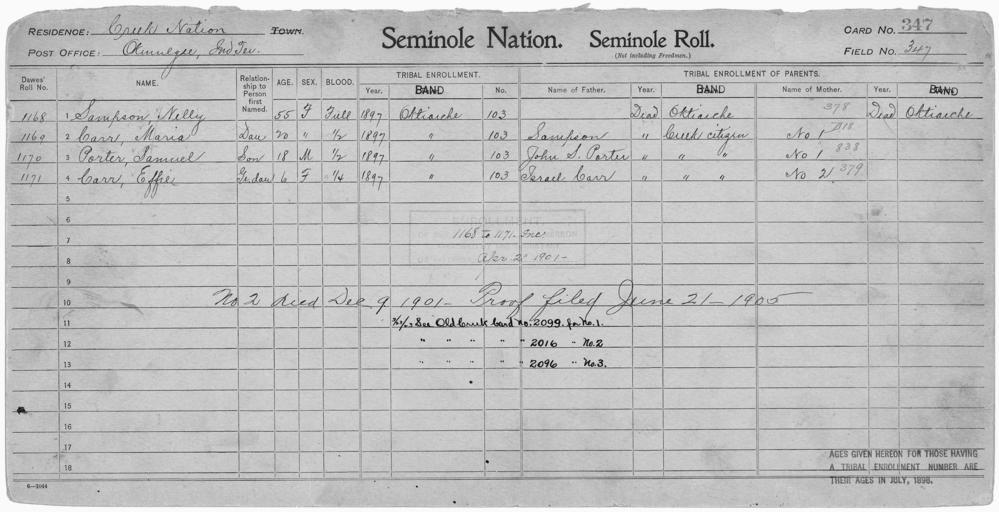 RESIDENCE: Creek Nation TOWN. Seminole Nation. Seminole Roll. CARD NO. 347
POST OFFICE: Okmulgee, Ind Ter. (Not including Freedmen.) FIELD NO. 347
Dawes' Roll No. NAME. Relationship to Person first Named. AGE. SEX. BLOOD. TRIBAL ENROLLMENT. TRIBAL ENROLLMENT OF PARENTS.
Year. BAND No. Name of Father. Year. BAND Name of Mother. Year. BAND
1168 1 Sampson, Nelly 55 F Full 1897 Oktiaiche 103 Dead Oktiaiche 378 Dead Oktiaiche
1169 2 Carr, Maria Dau 20 " 1/2 1897 " 103 Sampson " Creek citizen No 1
1170 3 Porter, Samuel Son 18 M 1/2 1897 " 103 John S. Porter " " " No 1 838
1171 4 Carr, Effie Gr dau 6 F 1/4 1897 " 103 Israel Carr " " " No 2 379
5
6
ENROLLMENT
7 1168 to 1171 Inc HEREON
8 Apr 2 1901-
9
10 No 2 died Dec 9 1901- Proof filed June 21-1905
11 See Old Creek Card No. 2099. for No. 1.
12 " " " " " 2016 " No. 2
13 " " " " " 2096 " No. 3.
14
15
16
17
18
AGES GIVEN HEREON FOR THOSE HAVING
A TRIBAL ENROLLMENT NUMBER ARE
THEIR AGES IN JULY, 1898.
6—2044